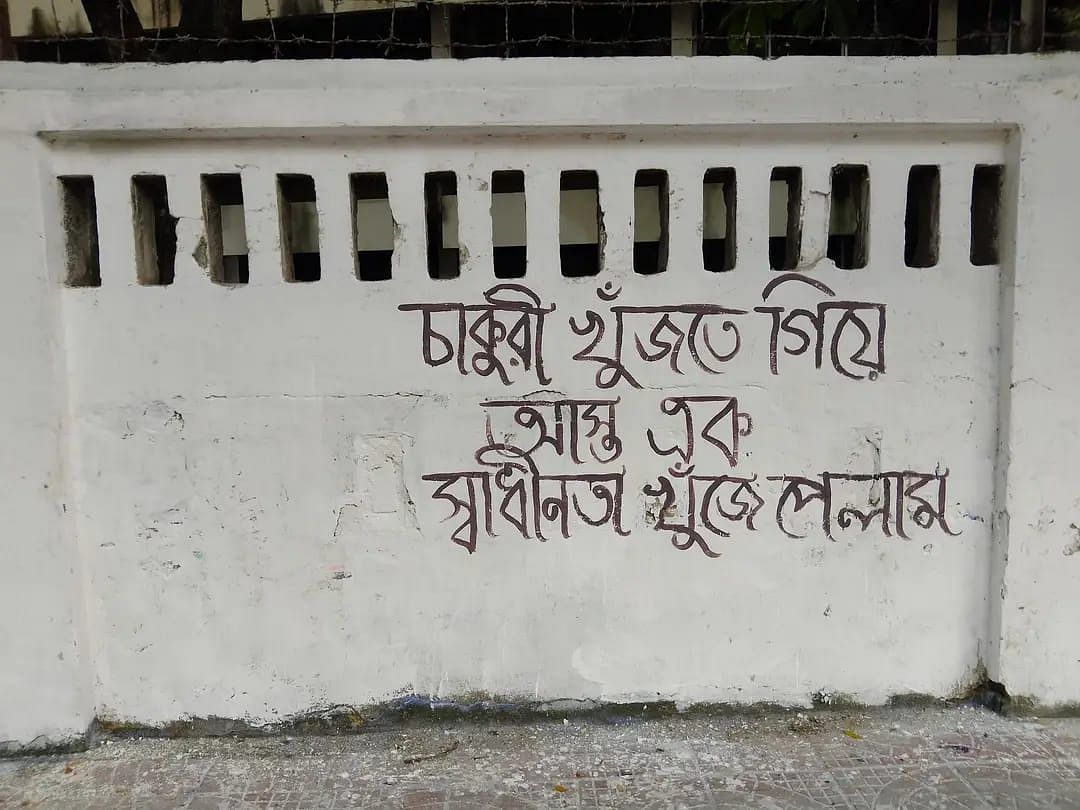 চাকুরী খুঁজতে গিয়ে
আস্ত এক
স্বাধীনতা খুঁজে পেলাম